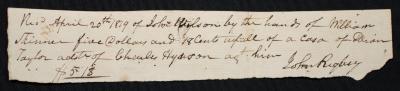 Recd April 25th 1819 of John Wilson by the hands of William
Skinner five Dollars and 18 Cents in full of a case of Dean
Taylor adtr of Charles Hyson agt him
$5.18 John Rigbey